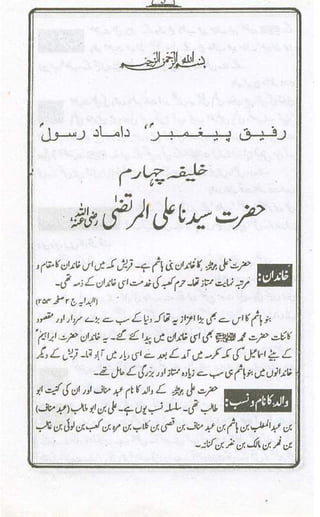 بسم اللہ الرحمن الرحیم
رفیق پیغمبرؐ، داماد رسولؐ
خلیفہ چہارم
حضرت سیدنا علی المرتضیٰ رضی اللہ عنہ
خاندان: حضرت علی کا خاندان بنی ہاشم ہے۔ قریش مکہ میں اس خاندان کا مقام و
مرتبہ نہایت ممتاز تھا۔ حرم کعبہ کی خدمت اسی خاندان کے ذمہ تھی۔
(البدایہ ج ۲ صفحہ ۲۵۴)
بنو ہاشم کا اس سے بھی بڑا اعزاز یہ تھا کہ دنیا کے سب سے بڑے سردار اور مقصود
کائنات حضرت محمد ﷺ بھی اسی خاندان میں پیدا کئے گئے۔ یہ خاندان حضرت ابراہیمؑ
کے بیٹے اسماعیلؑ کی مکہ مکرمہ میں آمد کے بعد سے اسی دیار میں آباد تھا۔ قریش کے دیگر
خاندانوں میں بنو ہاشم ہی سب سے زیادہ ممتاز اور بزرگی کے حامل تھے۔
والد کا نام و نسب: حضرت علی کے والد کا نام عبد مناف اور ان کی کنیت ابو
طالب تھی۔ سلسلہ نسب یوں ہے۔ علی بن ابو طالب (عبد مناف)
بن عبد المطلب بن ہاشم بن عبد مناف بن قصی بن کلاب بن مرہ بن کعب بن لوئی بن غالب
بن فہر بن مالک بن نضر بن کنانہ۔